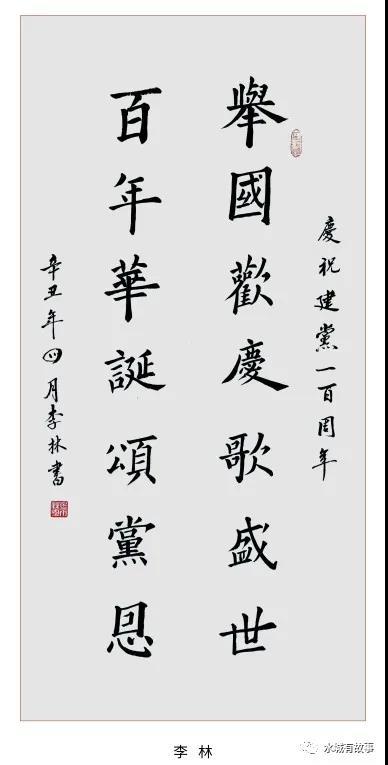 慶祝建黨一百周年
舉國歡慶歌盛世
百年華誕頌黨恩
辛丑年四月李林書
李 林
水城有故事